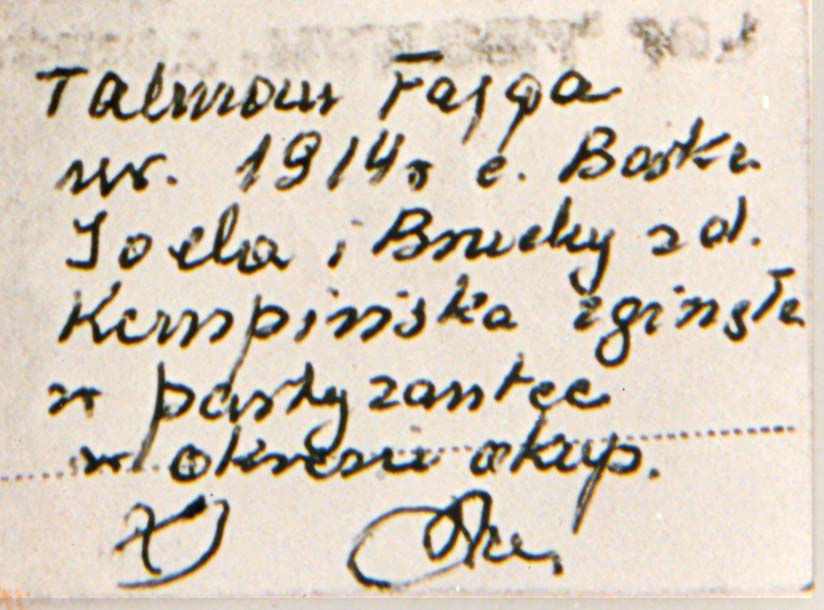 Talmon Fajga
ur. 1914r c. Borka
Joela i Bruchy z d.
Kempińska zginęła
w partyzantce
w okresie okup.